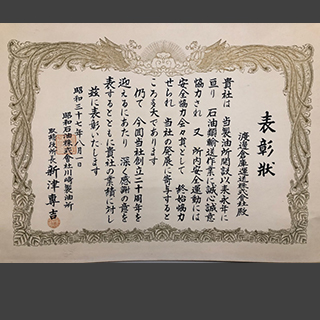 表彰状
渡邉倉庫運送株式会社殿
貴社は 当製油所開設以来永年に
亘り 石油類輸送作業に誠心誠意
協力され 又 所内安全運動には
安全協力会々員として 終始協力
せられ 当社の発展に寄与すると
ころ多大であります
仍て 今回当社創立二十周年を
迎えるにあたり 深く感謝の意を
表するとともに貴社の業績に対し
茲に表彰いたします
昭和三十七年八月一日
昭和石油株式会社川崎製油所
取締役所長 新津專吉